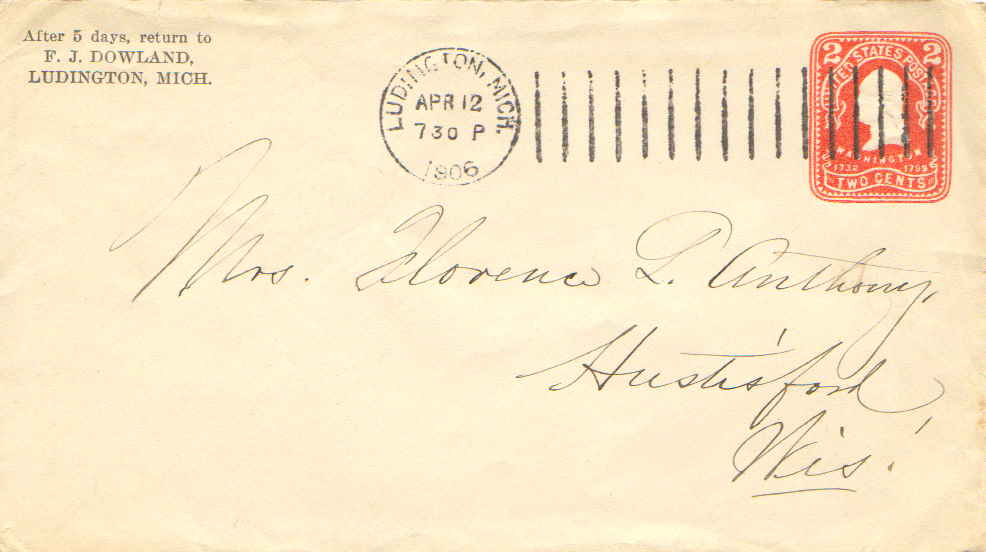 After 5 days, return to
F. J. DOWLAND,
LUDINGTON, MICH.
LUDINGTON, MICH.
APR 12
7 30 P
1906
2 2
UNITED STATES POSTAGE
WASHINGTON
1732 1799
TWO CENTS
Mrs. Florence L. Anthony,
Hustisford,
Wis.